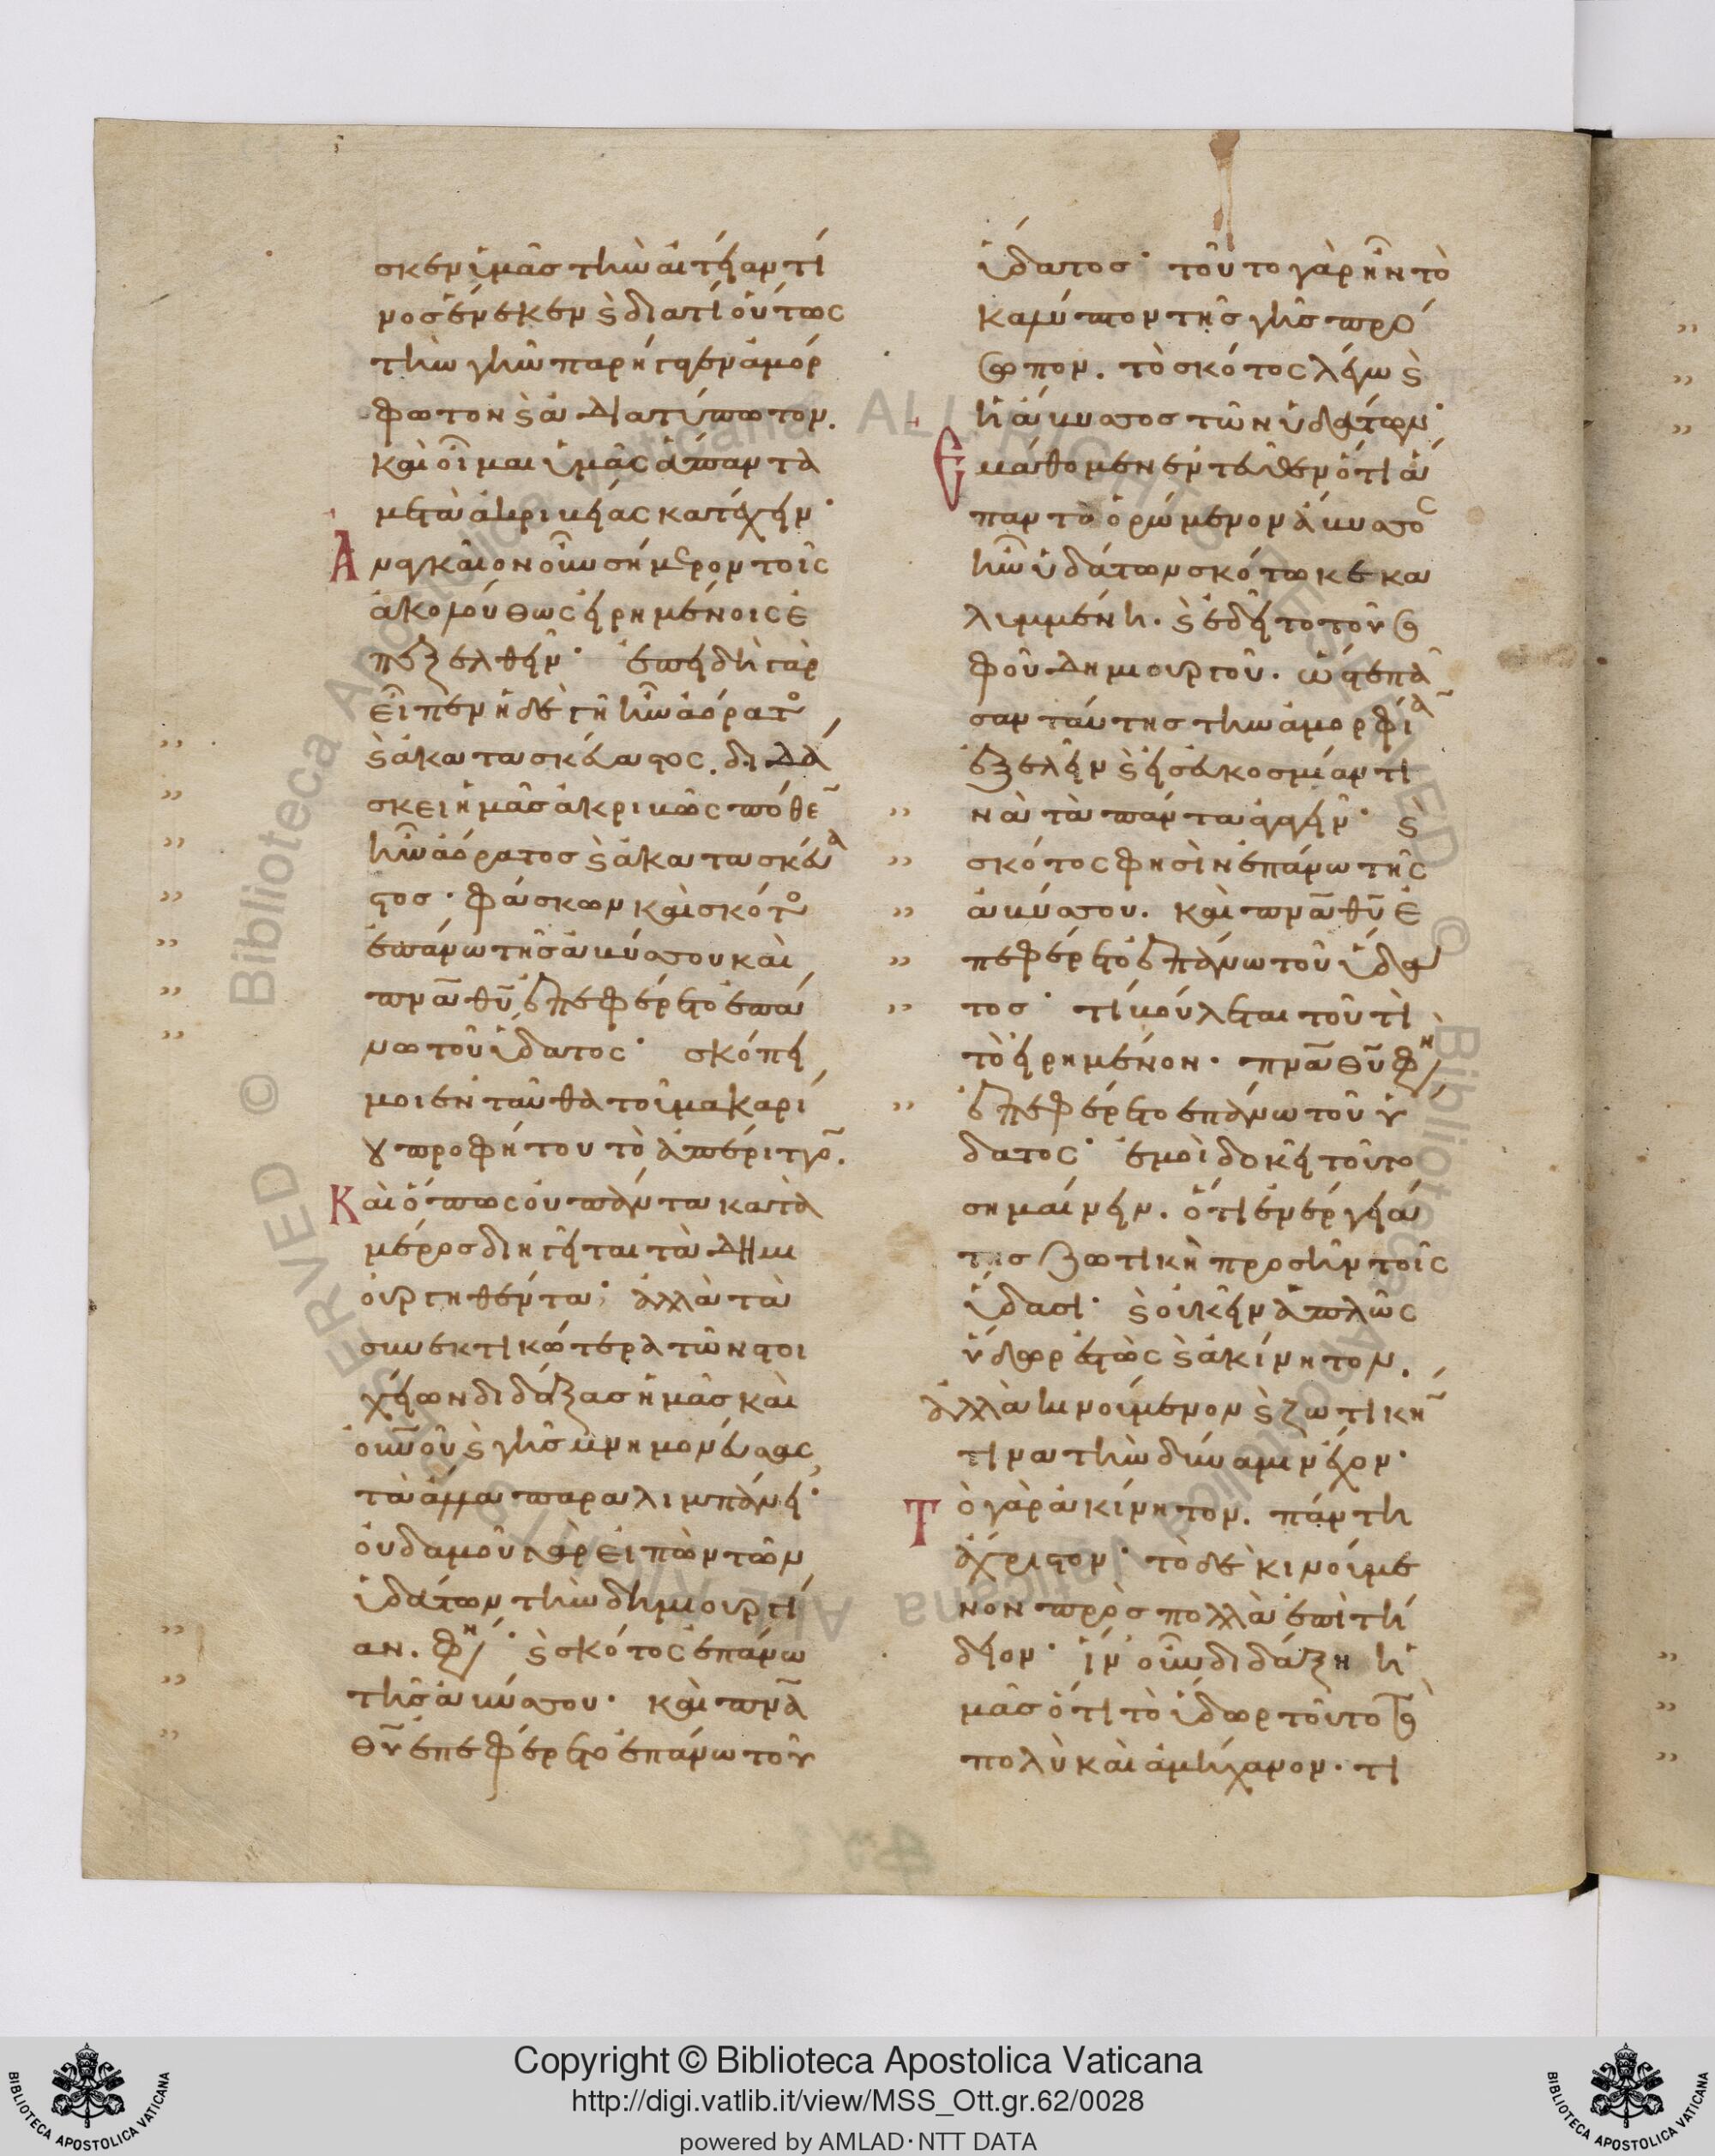 σκεν ὑμᾶς τὴν αἰτίαν τί
νος ἕνεκεν ϗ διατί οὕτως
τὴν γῆν παρήγαγεν ἀμόρ
φωτον ϗ ἀδιατύπωτον.
καὶ οἶμαι ὑμᾶς ἅπαντα
μετὰ ἀκριβείας κατέχειν·
Ἀναγκαῖον οὖν σήμερον τοῖς
ἀκολούθως εἰρημένοις ἐ
πεξελθεῖν· ἐπειδὴ γὰρ
εἶπεν ἡ δὲ γῆ ἦν ἀόρατο
ϗ ἀκατασκεύαστος. διδά
σκει ἡμᾶς ἀκριβῶς πόθε
ἦν ἀόρατος ϗ ἀκατασκεύα
στος· φάσκων καὶ σκότο
ἐπάνω τῆς ἀβύσσου καὶ
πνα θυ ἐπεφέρετο ἐπά
νω τοῦ ὕδατος· σκόπει
μοι ἐνταῦθα τοῦ μακαρί
ου προφήτου τὸ ἀπέριττο.
Καὶ ὅπως οὐ πάντα κατὰ
μέρος διηγεῖται τὰ δημι
ουργηθέντα· ἀλλὰ τὰ
συνεκτικώτερα τῶν στοι
χείων διδάξας ἡμᾶς καὶ
οὐνοῦ ϗ γῆς μνημονεύσας
τὰ ἄλλα παραλιμπάνει·
οὐδαμοῦ γὰρ εἰπὼν τῶν
ὑδάτων τὴν δημιουργί
αν. φη· ϗ σκότος ἐπάνω
τῆς ἀβύσσου· καὶ πνα
θυ ἐπεφέρετο ἐπάνω τοῦ
ὕδατος· τοῦτο γὰρ ἦν τὸ
καλύπτον τῆς γῆς πρό
σωπον. τὸ σκότος λέγω ϗ
ἡ ἄβυσσος τῶν ὑδάτων·
Ἐμάθομεν ἐντεῦθεν ὅτι ἅ
παν τὸ ὁρώμενον ἄβυσσος
ἦν ὑδάτων σκότω κεκα
λυμμένη. ϗ ἐδεῖτο τοῦ σο
φοῦ δημιουργοῦ. ὥστε πᾶ
σαν ταύτης τὴν ἀμορφία
ἐξελεῖν ϗ εἰς εὐκοσμίαν τι
νὰ τὰ πάντα ἀγαγεῖν· ϗ
σκότος φησὶν ἐπάνω τῆς
ἀβύσσου. καὶ πνα θυ ἐ
πεφέρετο ἐπάνω τοῦ ὕδα
τος· τί βούλεται τοῦτὶ
τὸ εἰρημένον. πνα θυ φη
ἐπεφέρετο ἐπάνω τοῦ ὕ
δατος· ἐμοὶ δοκεῖ τοῦτο
σημαίνειν. ὅτι ἐνέργειά
τις ζωτικὴ προσῆν τοῖς
ὕδασι· ϗ οὐκ ἦν ἁπλῶς
ὕδωρ ἑστὼς ϗ ἀκίνητον.
ἀλλὰ κινούμενον ϗ ζωτική
τινα τὴν δύναμιν ἔχον·
Τὸ γὰρ ἀκίνητον. πάντη
ἄχρηστον· τὸ δὲ κινούμε
νον πρὸς πολλὰ ἐπιτή
δειον· ἵν' οὖν διδάξη ἡ
μᾶς ὅτι τὸ ὕδωρ τοῦτο τὸ
πολὺ καὶ ἀμήχανον. τι
Copyright © Biblioteca Apostolica Vaticana
http://digi.vatlib.it/view/MSS_Ott.gr.62/0028
powered by AMLAD·NTT DATA